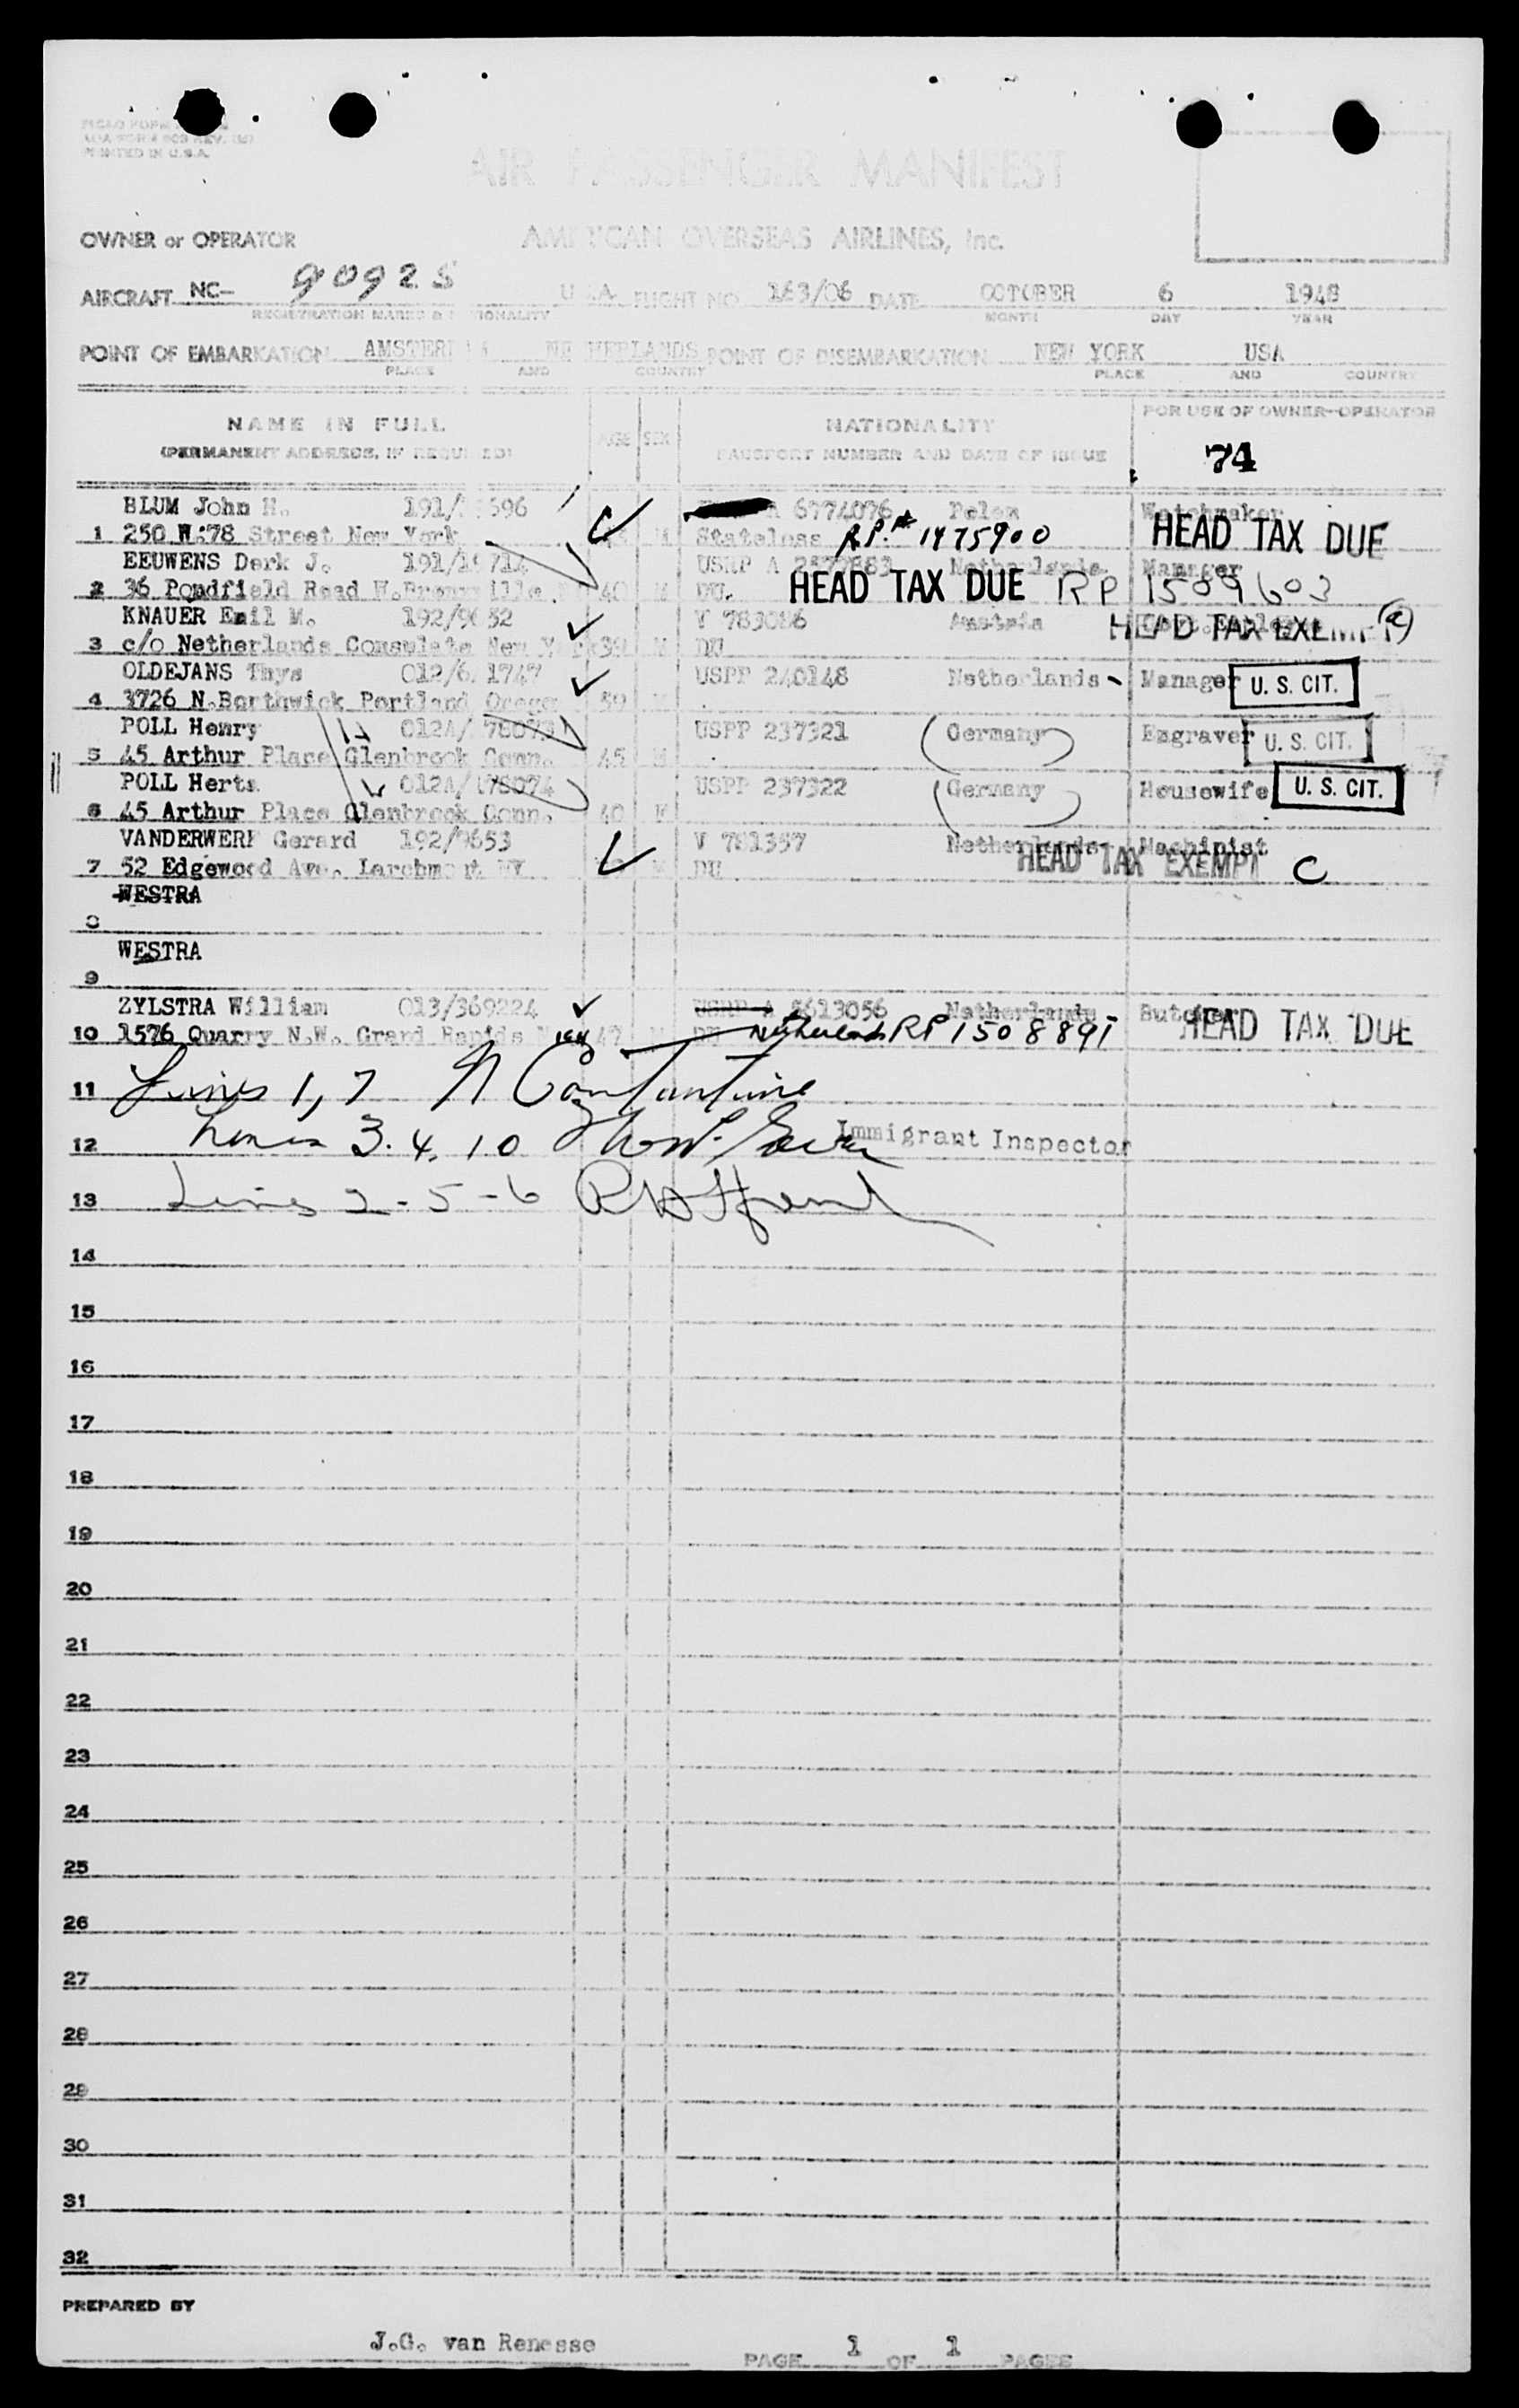 PRINTED IN U.S.A.
AIR PASSENGER MANIFEST
OWNER or OPERATOR AMERICAN OVERSEAS AIRLINES, Inc.
AIRCRAFT NC- 90925 U.S.A. FLIGHT NO 163/06 DATE OCTOBER 6 1948
REGISTRATION MARKS & NATIONALITY MONTH DAY YEAR
POINT OF EMBARKATION AMSTERDAM NETHERLANDS POINT OF DISEMBARKATION NEW YORK USA
PLACE AND COUNTRY PLACE AND COUNTRY
NAME IN FULL AGE SEX NATIONALITY FOR USE OF OWNER-OPERATOR
(PERMANENT ADDRESS, IF REQUIRED) PASSPORT NUMBER AND DATE OF ISSUE 74
BLUM John H. 6774076 Watchmaker
1 250 W.78 Street New York M Stateless R.P.# 1475900 HEAD TAX DUE
EEUWENS Derk J. USRP A Netherlands Manager
2 36 Pondfield Road 40 M DU. HEAD TAX DUE RP 1589603
KNAUER Emil M. V 783086 Austria
3 c/o Netherlands Consulate New York 39 M DU HEAD TAX EXEMPT
OLDEJANS Thys USPP 240148 Netherlands Manager U. S. CIT.
4 3726 N.Borthwick Portland Oregon 59 M
POLL Henry USPP 237321 Germany Engraver U. S. CIT.
5 45 Arthur Place Glenbrook Conn. 45 M
POLL Herta 012A/178074 USPP 237322 Germany Housewife U. S. CIT.
6 45 Arthur Place Glenbrook Conn. 40 F
VANDERWERF Gerard V 781357 Netherlands Machinist
7 52 Edgewood Ave. Larchmont NY M DU HEAD TAX EXEMPT C
WESTRA
8
WESTRA
9
ZYLSTRA William 013/369224 USRP A 5613056 Netherlands Butcher
10 1576 Quarry N.W. Grand Rapids 47 M DU Netherlands RP 1508891 HEAD TAX DUE
11 Lines 1, 7 N Constantine
12 Lines 3. 4. 10 Immigrant Inspector
13 Lines 2-5-6
14
15
16
17
18
19
20
21
22
23
24
25
26
27
28
29
30
31
32
PREPARED BY
J.G. van Renesse PAGE 1 OF 1 PAGES